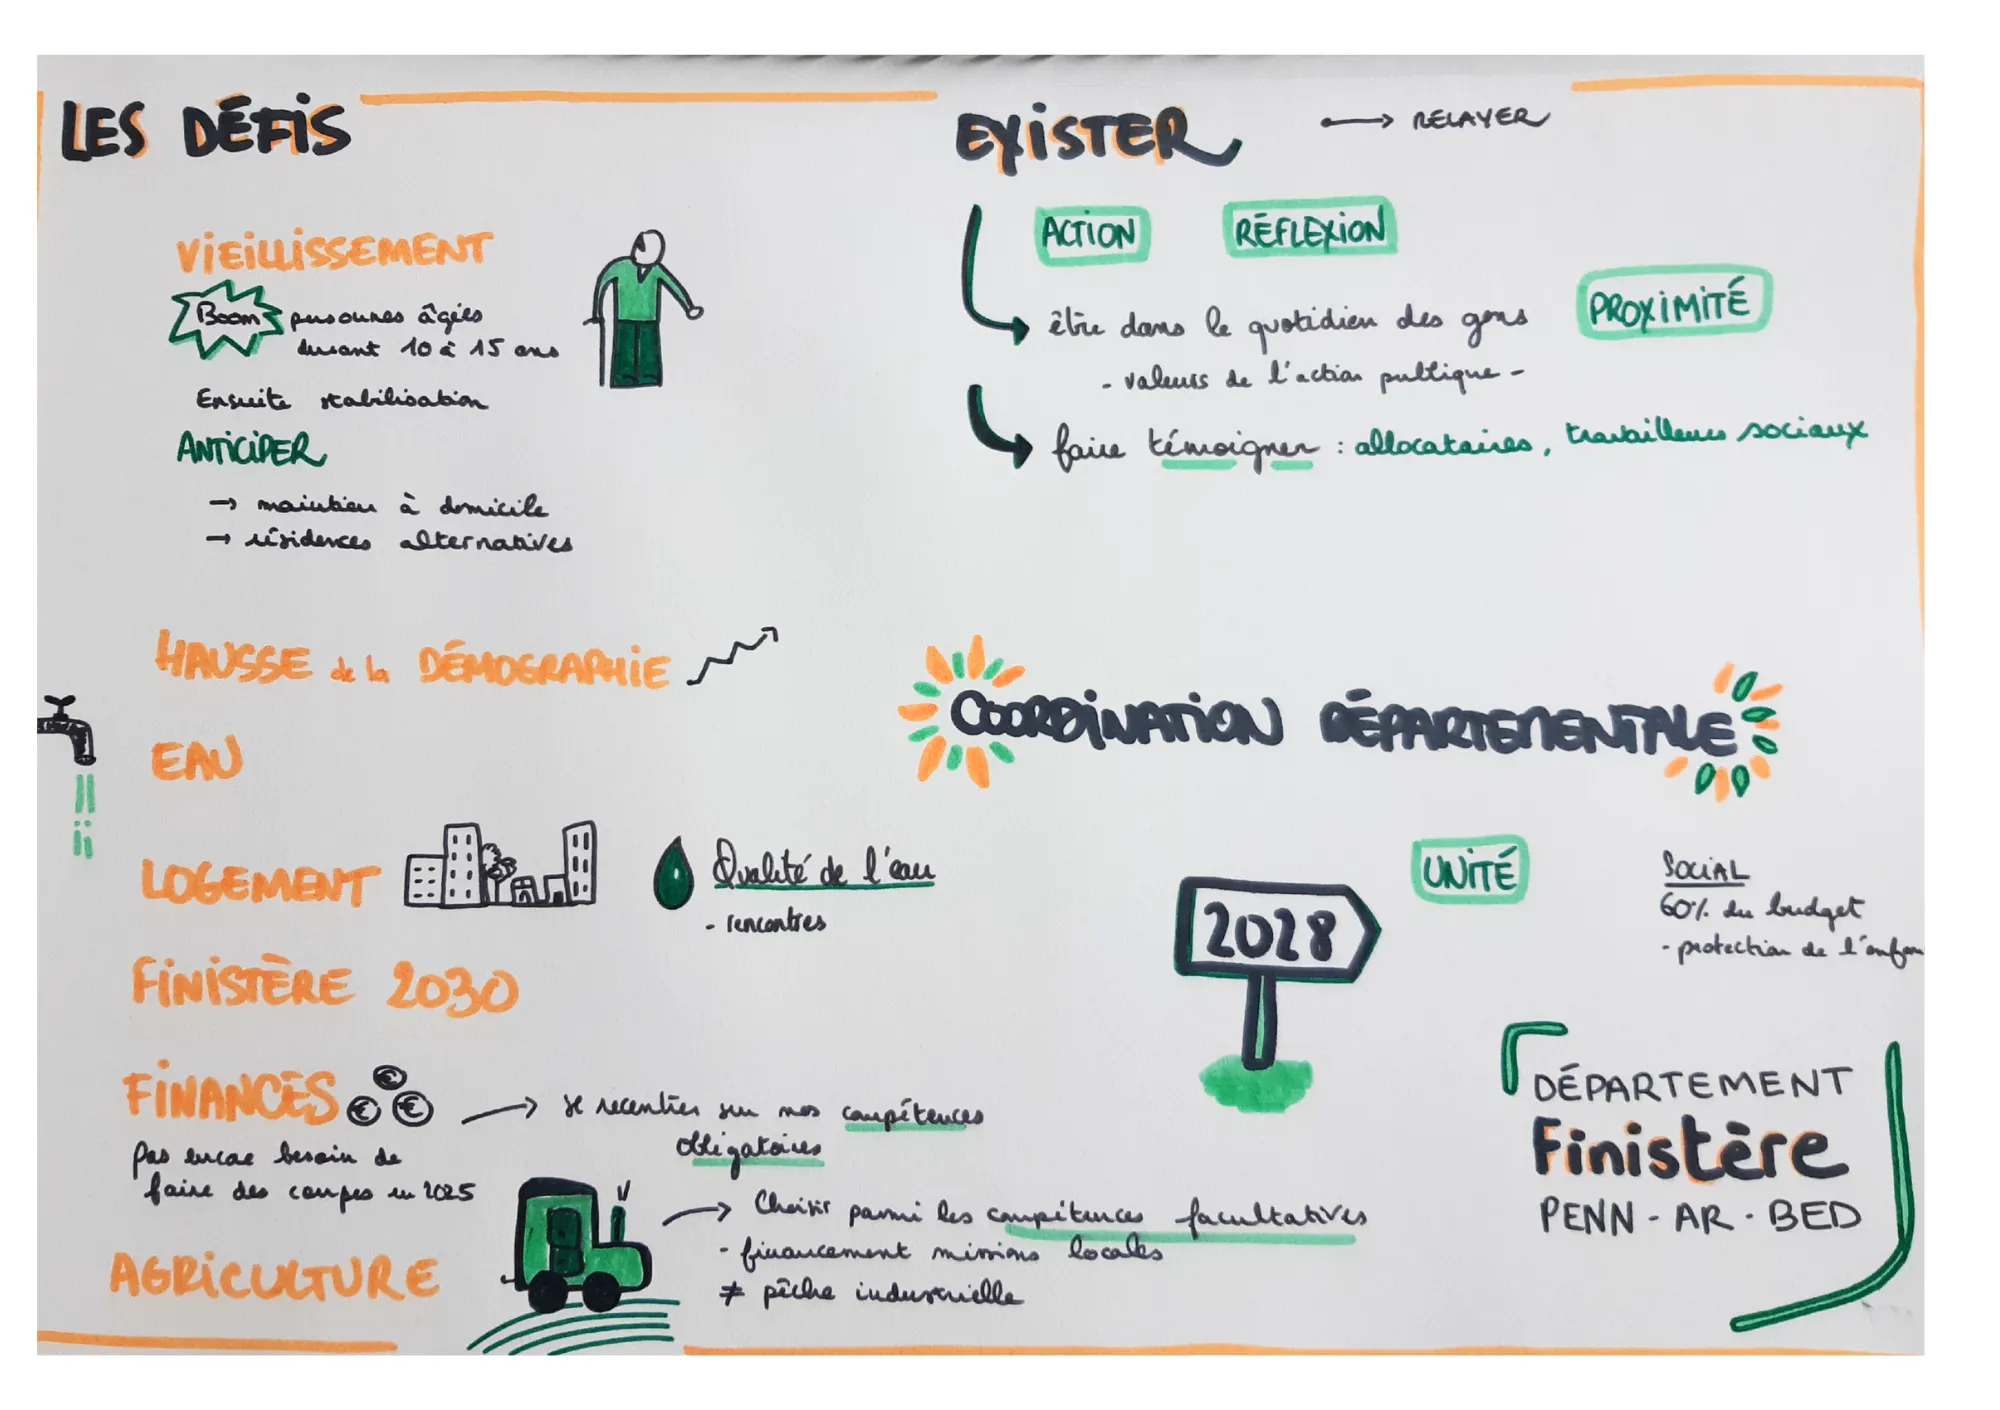 LES DÉFIS
VIEILLISSEMENT
Boom personnes âgées
durant 10 à 15 ans
Ensuite stabilisation
ANTICIPER
→ maintien à domicile
→ résidences alternatives
HAUSSE de la DÉMOGRAPHIE
EAU
LOGEMENT
Qualité de l'eau
- rencontres
FINISTÈRE 2030
FINANCES
→ se recentrer sur nos compétences
obligatoires
Pas encore besoin de
faire des coupes en 2025
→ Choisir parmi les compétences facultatives
- financement missions locales
≠ pêche industrielle
AGRICULTURE
EXISTER → RELAYER
ACTION RÉFLEXION
PROXIMITÉ
être dans le quotidien des gens
- valeurs de l'action publique -
faire témoigner : allocataires, travailleurs sociaux
COORDINATION DÉPARTEMENTALE
UNITÉ
2028
SOCIAL
60% du budget
- protection de l'enfan
DÉPARTEMENT
Finistère
PENN-AR-BED